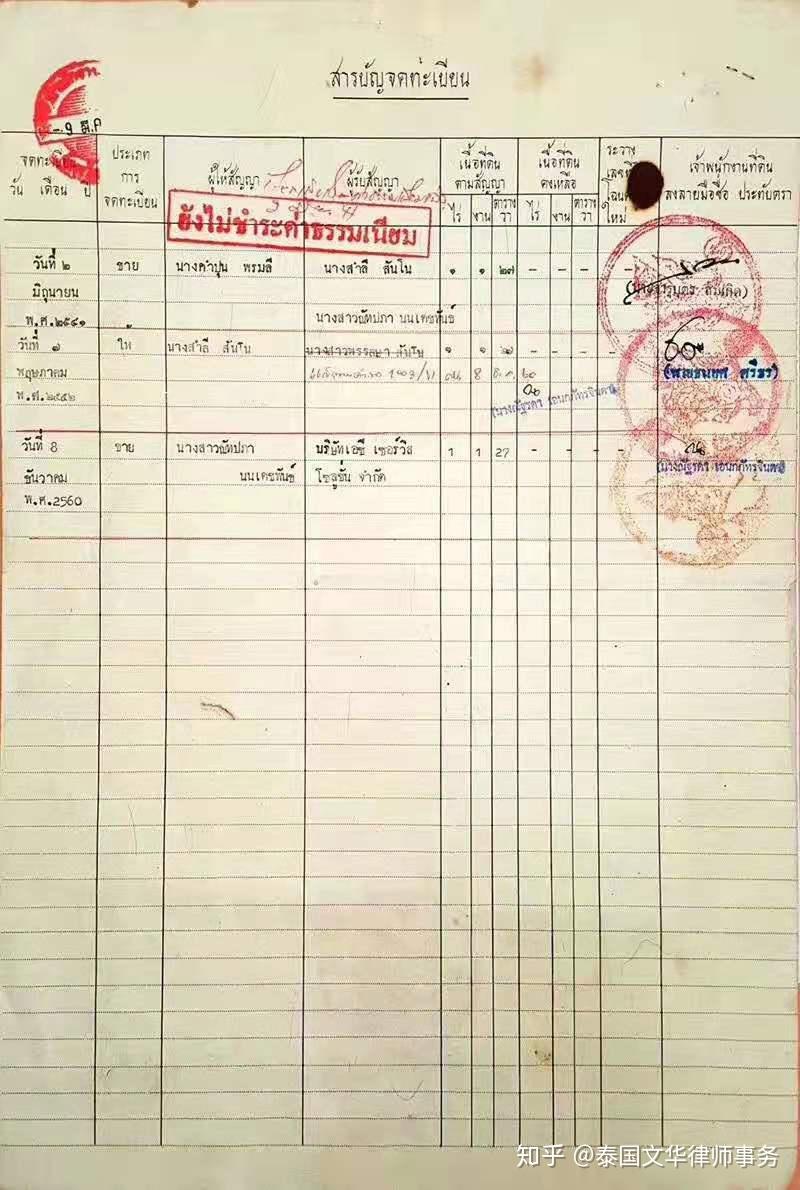 สารบัญจดทะเบียน
-9 มี.ค
จดทะเบียน
วัน เดือน ปี
ประเภท
การ
จดทะเบียน
ผู้ให้สัญญา
ผู้รับสัญญา
เนื้อที่ดิน
ตามสัญญา
ไร่ งาน ตาราง
วา
เนื้อที่ดิน
คงเหลือ
ไร่ งาน ตาราง
วา
ระวาง
เลขที่
โฉนด
ใหม่
เจ้าพนักงานที่ดิน
ลงลายมือชื่อ ประทับตรา
ยังไม่ชำระค่าธรรมเนียม
วันที่ ๒ ขาย นางคำปุน พรมลี นางสำลี สันโน ๑ ๑ ๒๗ - - - -
มิถุนายน
พ.ศ.๒๕๔๑ นางสาวณัทปภา นนเตชทันธ์
วันที่ ๗ ให้ นางสำลี สันโน นางสาวพรรลษา สันโน ๑ ๑ ๒๗ - - - -
พฤษภาคม 8 ธ.ค. ๖๐
พ.ศ.๒๕๕๒
วันที่ 8 ขาย นางสาวณัทปภา บริษัทเอซี เซอร์วิส 1 1 27 - - - -
ธันวาคม นนเตชทันธ์ โซลูชั่น จำกัด
พ.ศ.2560
知乎 @泰国文华律师事务